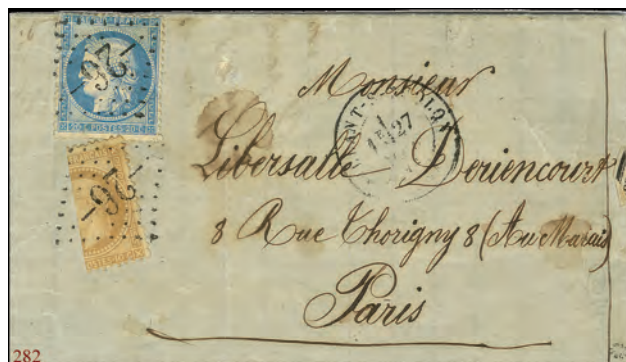 26
20 C. POSTES 20 C.
26
27
Monsieur
Libersalle Deriencourt
8 Rue Thorigny 8 (Au Marais)
Paris
282